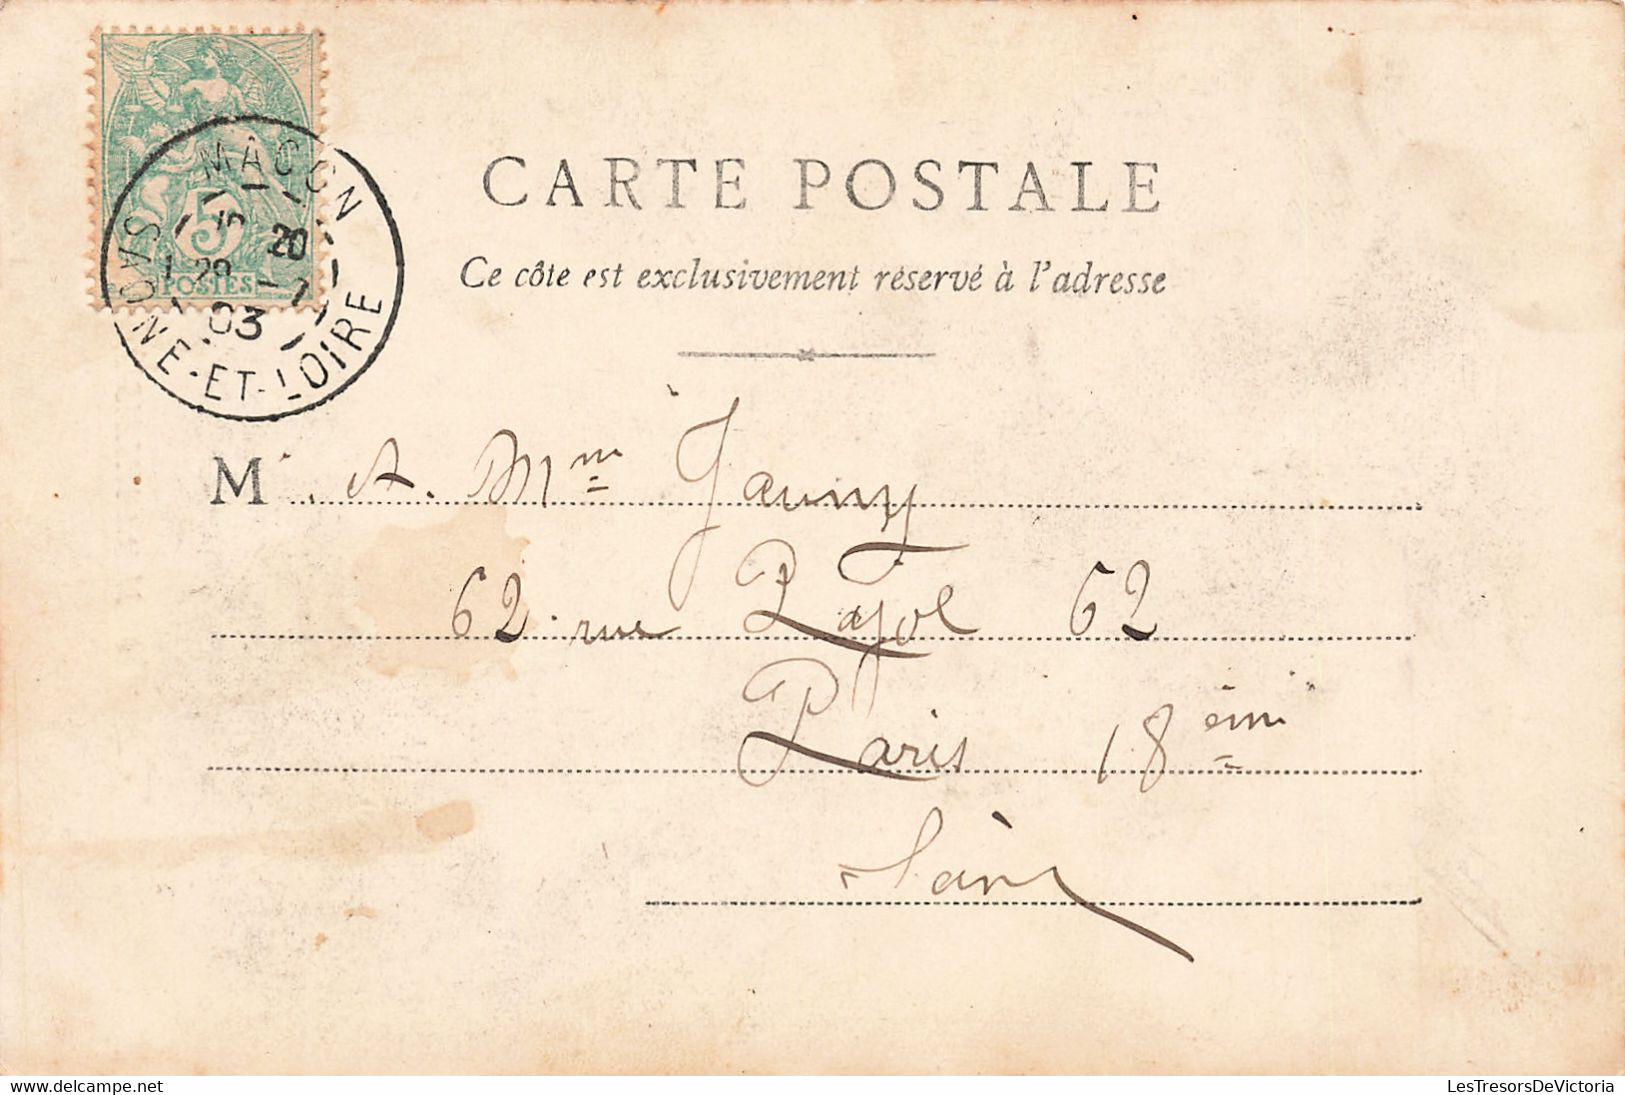 5
POSTES
MÂCON
15 20
29 -7
03
SAÔNE-ET-LOIRE
CARTE POSTALE
Ce côté est exclusivement réservé à l'adresse
M. A. Mme Jauny
62 rue Pajol 62
Paris 18ème
LesTresorsDeVictoria